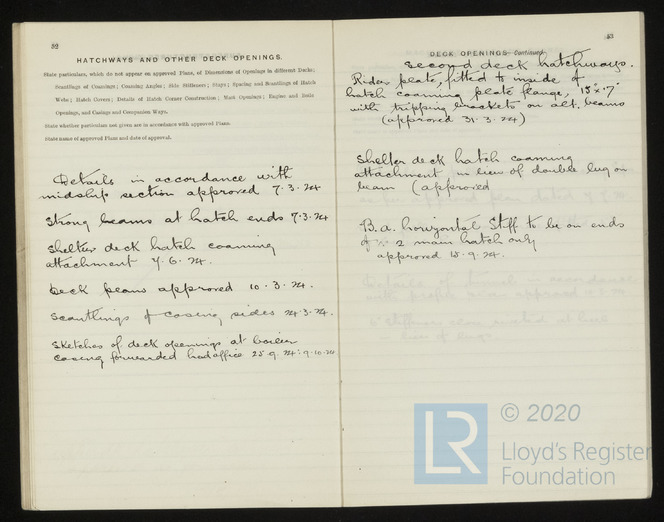 52
HATCHWAYS AND OTHER DECK OPENINGS.
State particulars, which do not appear on approved Plans, of Dimensions of Openings in different Decks;
Scantlings of Coamings; Coaming Angles; Side Stiffeners; Stays; Spacing and Scantlings of Hatch
Webs; Hatch Covers; Details of Hatch Corner Construction; Mast Openings; Engine and Boiler
Openings, and Casings and Companion Ways.
State whether particulars not given are in accordance with approved Plans.
State name of approved Plans and date of approval.
Details in accordance with
midship section approved 7.3.24
Strong beams at hatch ends 7.3.24
Shelter deck hatch coaming
attachment 4.6.24.
Deck plans approved 10.3.24.
Scantlings of casing sides 24.3.24.
Sketches of deck openings at boiler
casing forwarded head office 25.9.24: 9.10.24
53
DECK OPENINGS—Continued.
Second deck hatchways.
Rider plate, fitted to inside of
hatch coaming plate flange,
with tripping brackets on alt. beams
(approved 31.3.24)
Shelter deck hatch coaming
attachment in lieu of double lug on
beam (approved
B.a. horizontal Stiff to be on ends
of No 2 main hatch only
approved 15.9.24.
LR
© 2020
Lloyd's Register
Foundation